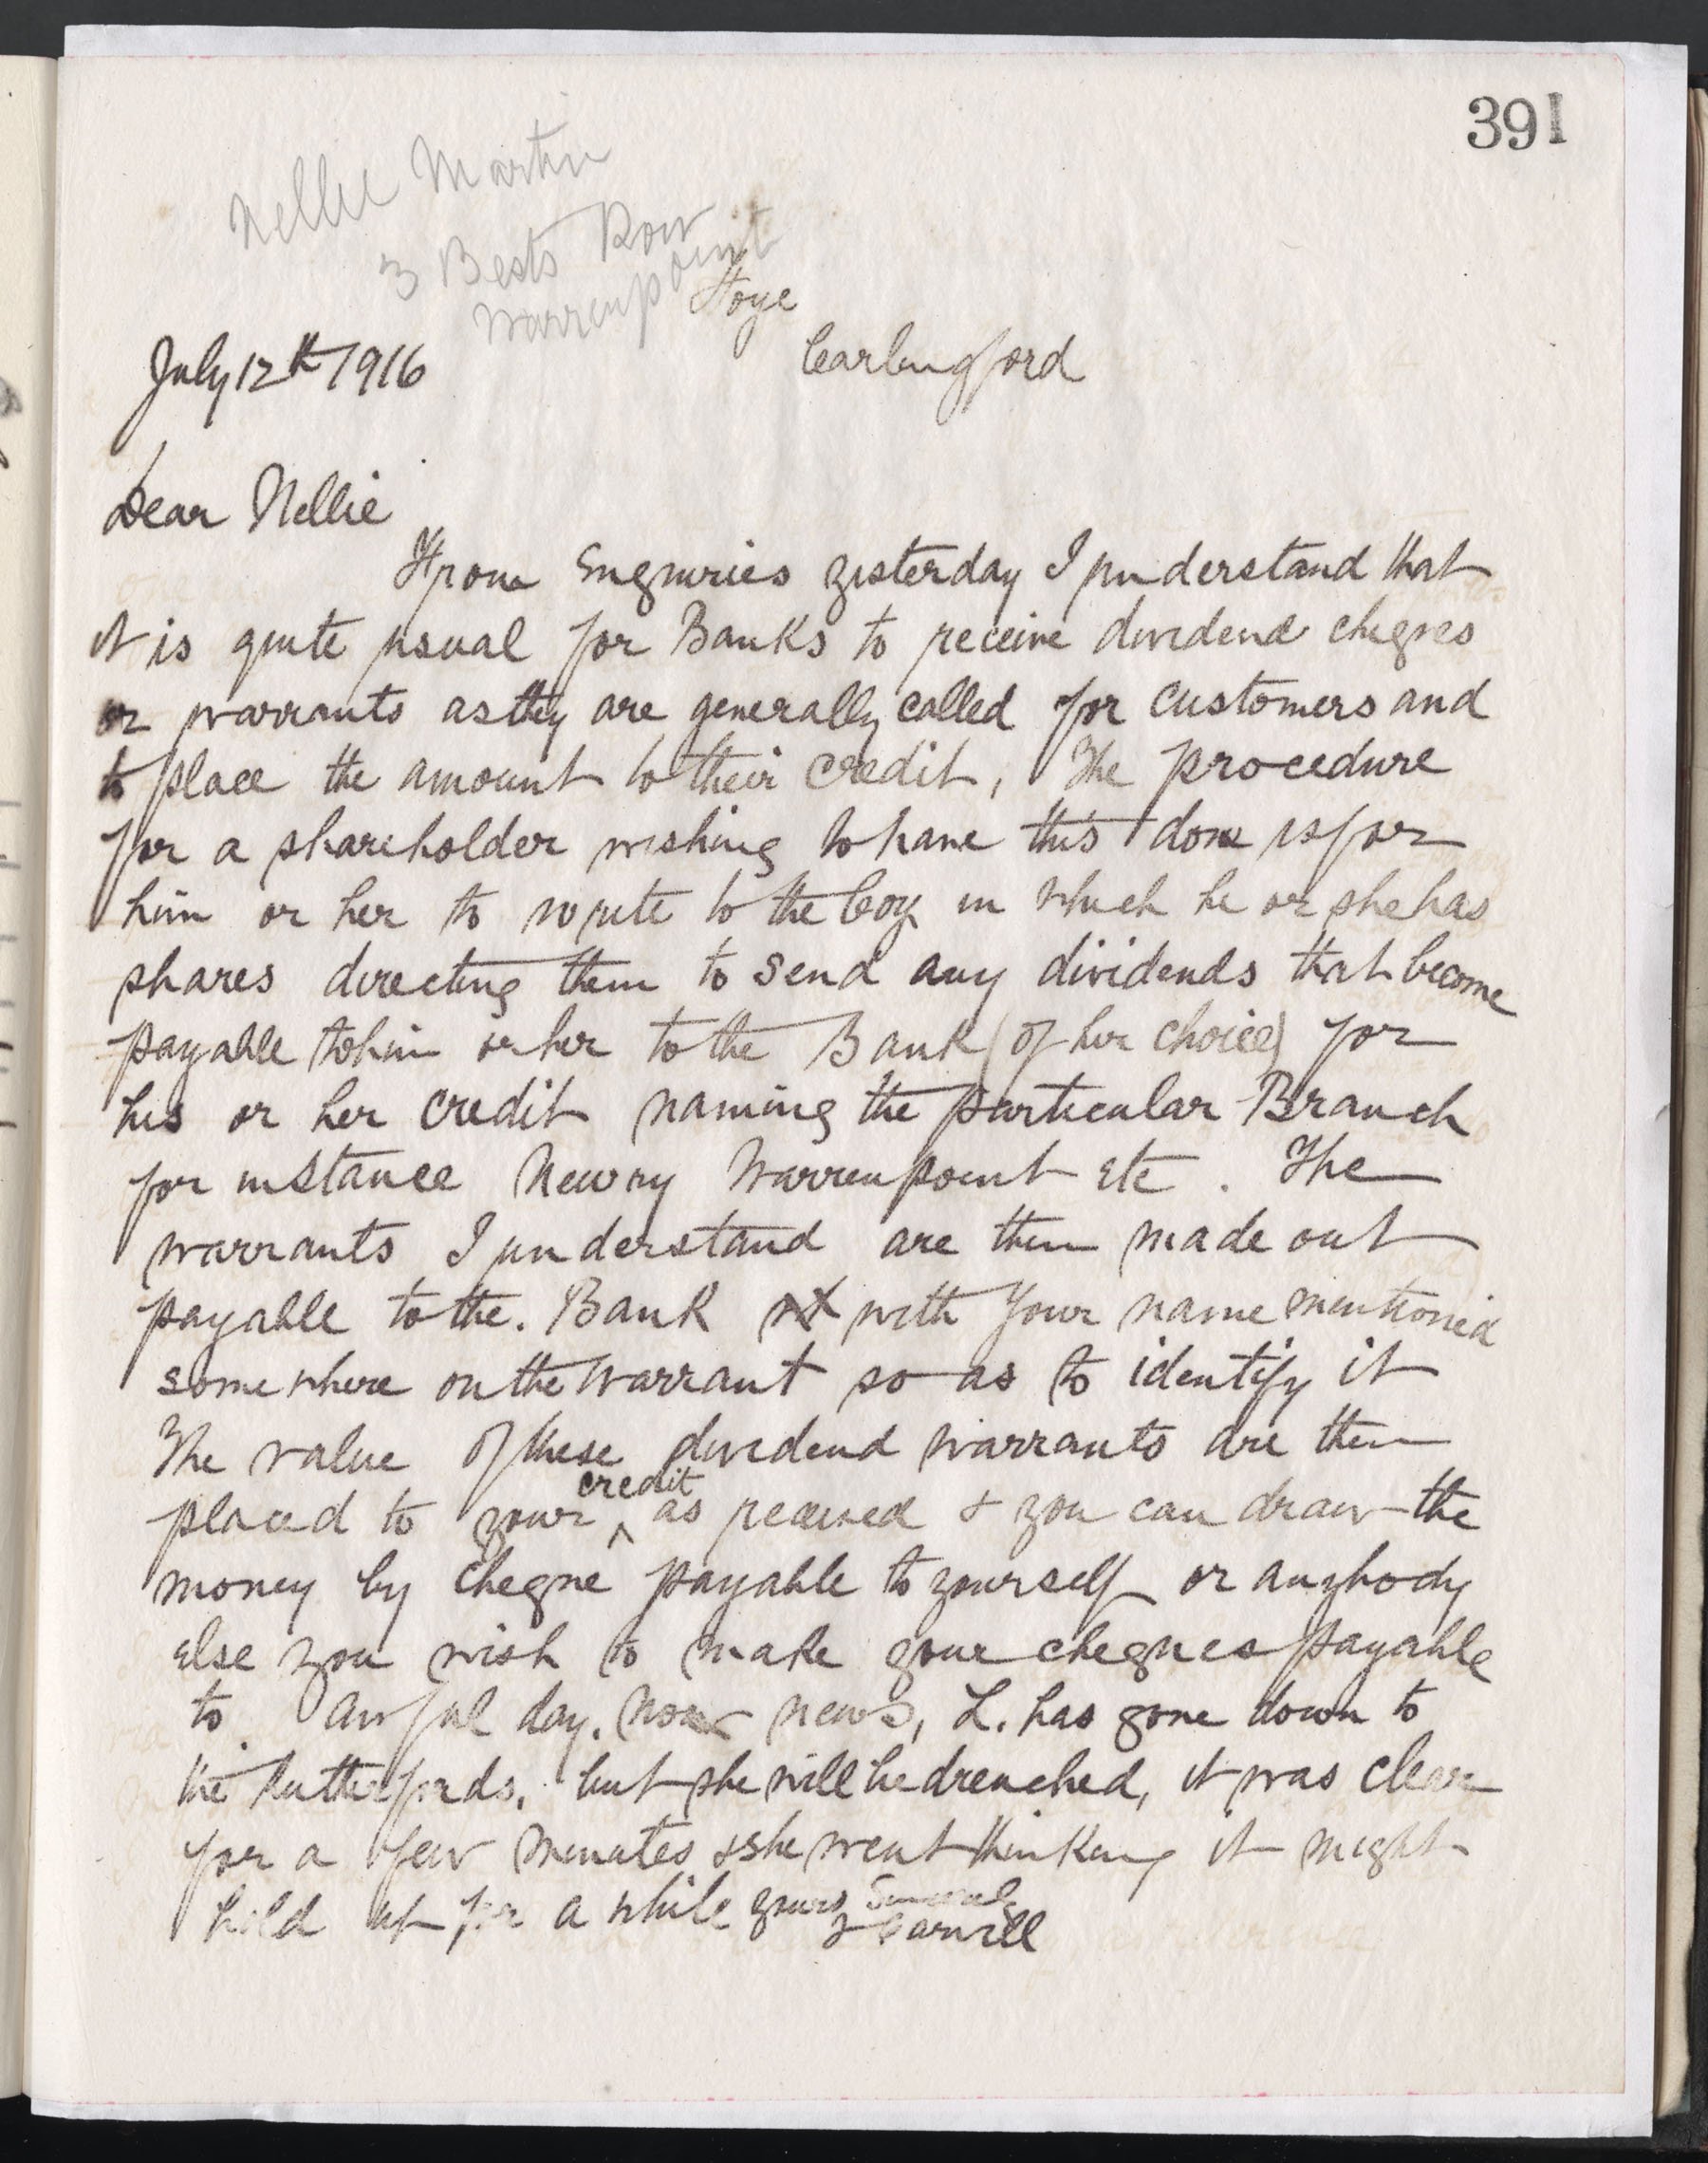 391
Nellie Martin
3 Bests Row
Warrenpoint
July 12th 1916
Carlingford
Dear Nellie
From Enquiries yesterday I understand that
it is quite usual for Banks to receive dividend cheques
or warrants as they are generally called for customers and
to place the amount to their credit, The procedure
for a shareholder wishing to have this done is for
him or her to write to the Coy in which he or she has
shares directing them to send any dividends that become
payable to him or her to the Bank (of her choice) for
his or her credit naming the particular Branch
for instance Newry Warrenpoint etc . The
warrants I understand are then made out
payable to the. Bank with your name mentioned
somewhere on the warrant so as to identify it
The value of these dividend warrants are then
placed to your credit as received & you can draw the
money by cheque payable to yourself or anybody
else you wish to make your cheques payable
to Awful day. news, L. has gone down to
the Rutterfords, but she will be drenched, it was clear
for a few minutes & she went thinking it might
hold up for a while yours